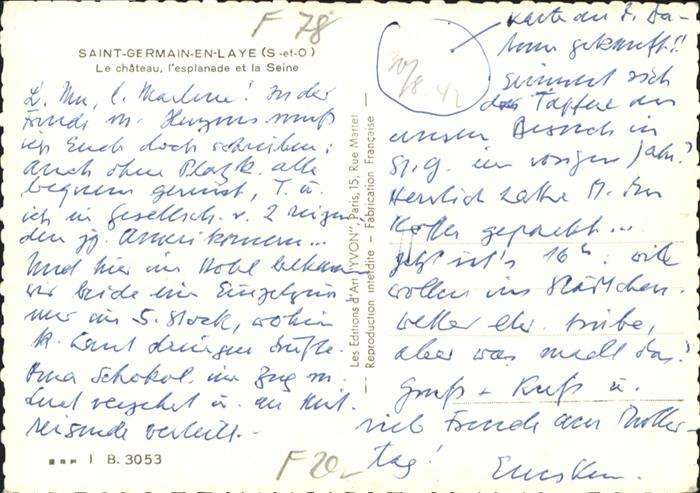 F 78
SAINT-GERMAIN-EN-LAYE (S.-et-O.)
Le château, l'esplanade et la Seine
L. Mu, l. Marlene! In der
Freude m. Herzens muß
ich Euch doch schreiben:
Auch ohne Platzk. alle
bequem gereist, T. u.
ich in Gesellsch. v. 2
den jg. Amerikanern...
Und hier im Hotel bekamen
wir beide ein Einzelzim
mer im 5. Stock, wohin
k. Laut dringen dürfte.
Oma Schokol. im Zug m.
Lust verzehrt u. an Mit.
reisende verteilt.-
I B. 3053
F 20.-
Les Editions d'Art "YVON", Paris, 15, Rue Martel
Reproduction interdite - Fabrication Française
Karte der
gekauft!!
erinnert sich
der Tapfere an
unseren Besuch in
St. G. im vorigen Jahr?
Herrlich hatte M. den
Koffer gepackt...
Jetzt ist's 16 h. wir
wollen ins Städtchen.
Wetter eher trübe,
aber was macht das?
Gruß + Kuß u.
viel Freude am Mutter-
tag!